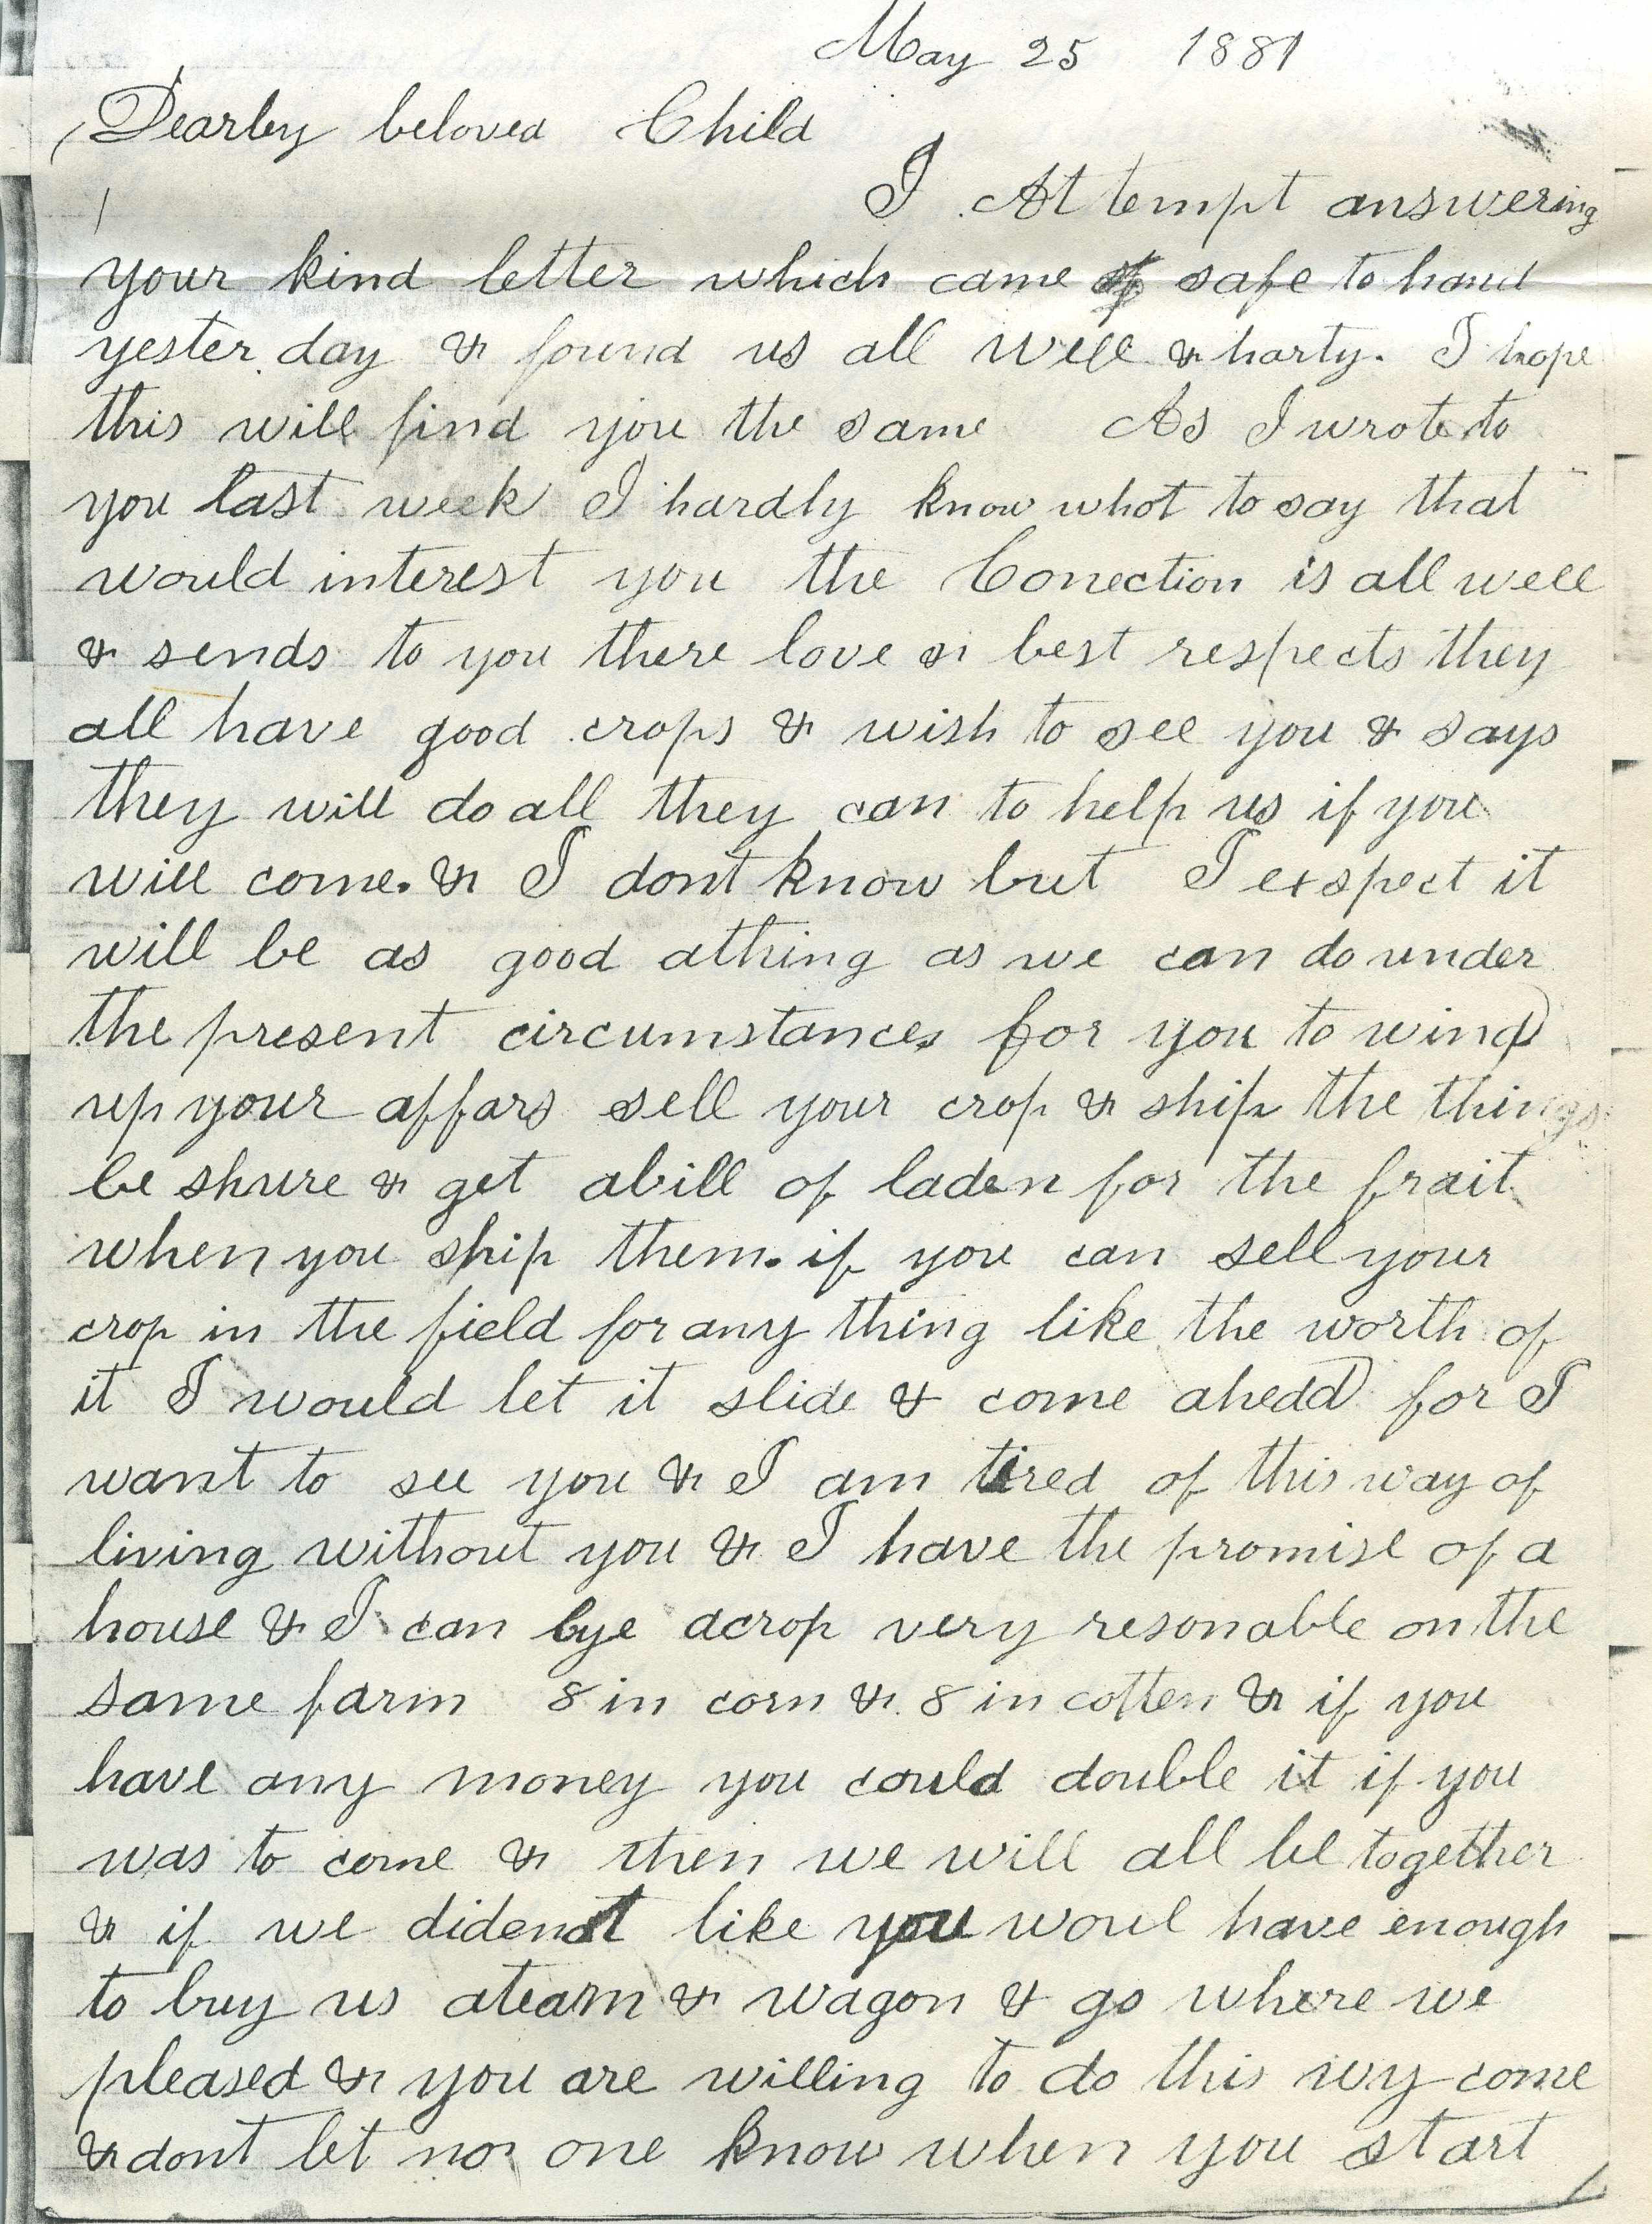 May 25 1881
Dearly beloved Child
I Attempt answering
your kind letter which came safe to hand
yester day & found us all well & harty. I hope
this will find you the same As I wrote to
you last week I hardly know whot to say that
would interest you the Conection is all well
& sends to you there love & best respects they
all have good crops & wish to see you & says
they will do all they can to help us if you
will come. & I dont know but I exspect it
will be as good athing as we can do under
the present circumstances for you to wind
up your affars sell your crop & ship the things
be shure & get abill of laden for the frait
when you ship them. if you can sell your
crop in the field for any thing like the worth of
it I would let it slide & come ahead for I
want to see you & I am tired of this way of
living without you & I have the promise of a
house & I can bye acrop very resonable on the
same farm 8 in corn & 8 in cotten & if you
have any money you could double it if you
was to come & then we will all be together
& if we didenot like you woul have enough
to buy us ateam & wagon & go where we
pleased & you are willing to do this wy come
& dont let no one know when you start